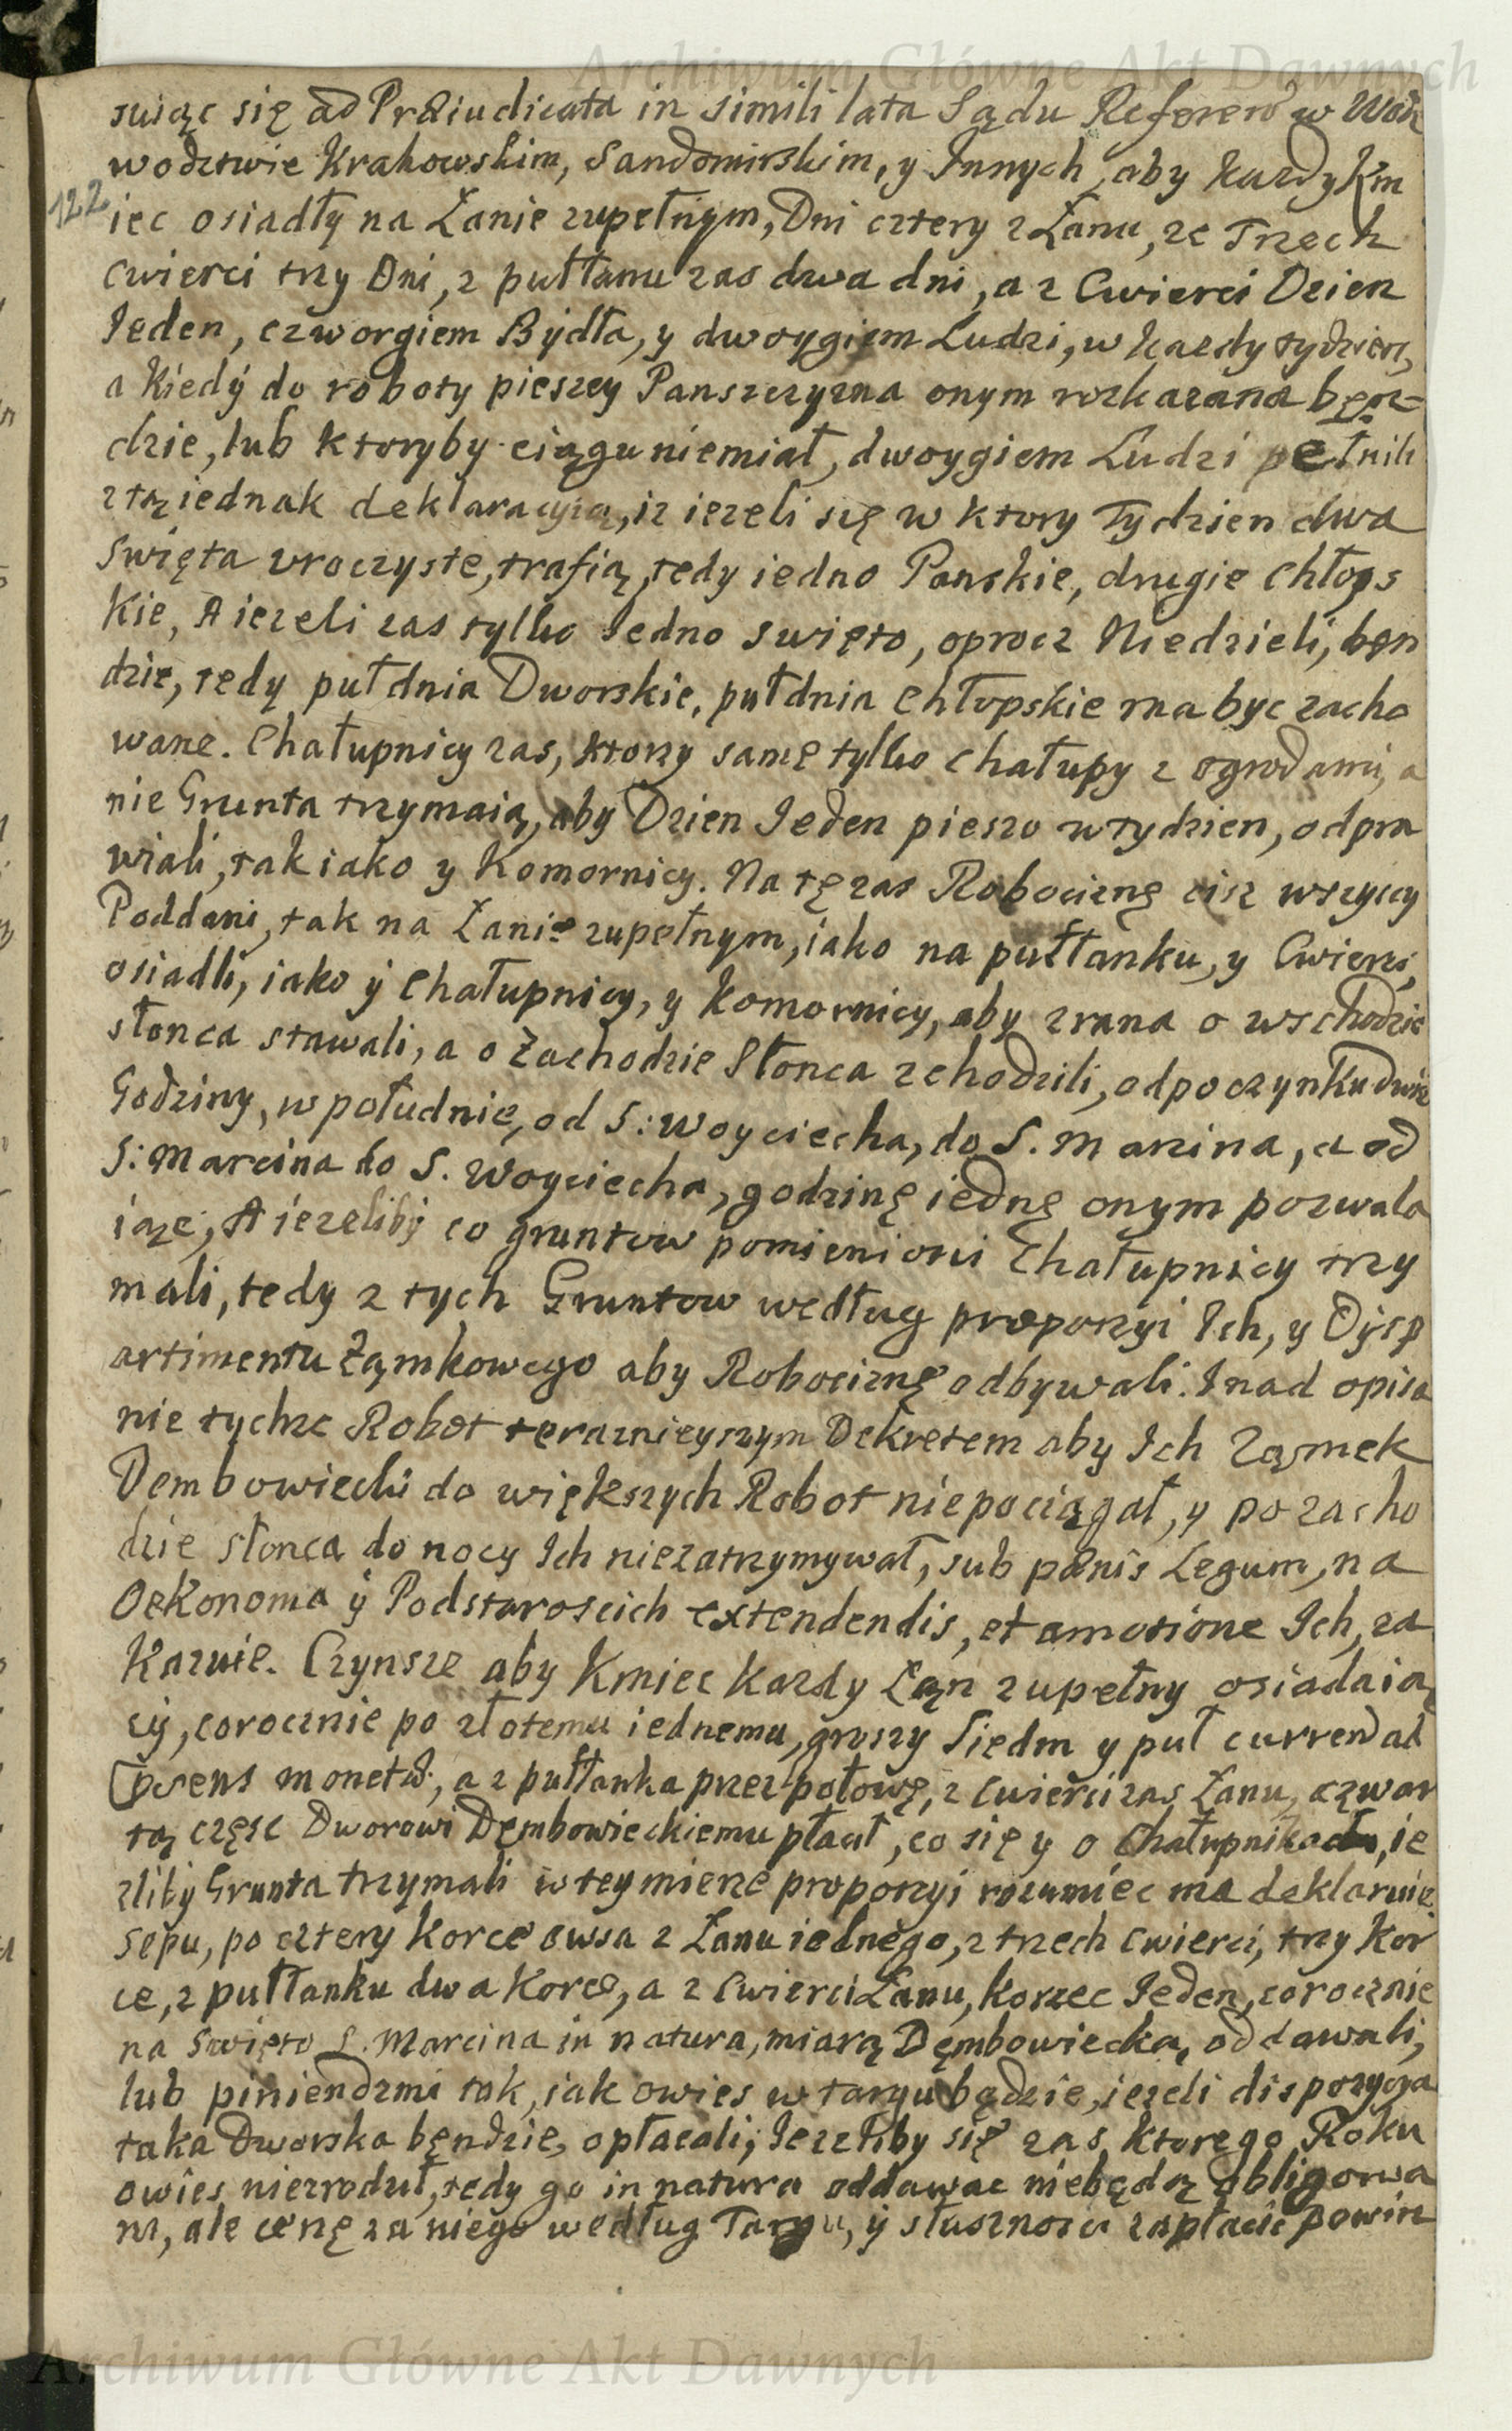 Archiwum Główne Akt Dawnych
suiąc się ad Præiudicata in simili lata Sądu Referen: w Woie
wodztwie Krakowskim, Sandomirskim, y Innych, aby kazdy Km
122
iec osiadły na Łanie zupełnym, Dni cztery z Łanu, ze Trzech
cwierci trzy Dni, z pułłanu zas dwa dni, a z Cwierci Dzien
Ieden, czworgiem Bydła, y dwoygiem Ludzi, w kazdy tydzien,
a kiedy do roboty pieszey Panszczyzna onym rozkazana bęn=
dzie, lub ktoryby ciągu niemiał, dwoygiem Ludzi pełnili
z tą iednak deklaracyią, iz iezeli się w ktory Tydzien dwa
Swięta vroczyste, trafią, tedy iedno Panskie, drugie chłops
kie, A iezeli zas tylko Iedno swięto, oprocz Niedzieli, ben
dzie, tedy puł dnia Dworskie, puł dnia chłopskie ma byc zacho
wane. Chałupnicy zas, ktorzy same tylko chałupy z ogrodami, a
nie Grunta trzymaią, aby Dzien Ieden pieszo w tydzien, odpra
wiali, tak iako y Komornicy. Na tę zas Robociznę ciz wszyscy
Poddani, tak na Łanie zupełnym, iako na pułłanku, y Cwierci,
osiadli, iako y chałupnicy, y Komornicy, aby zrana o wschodzie
słonca stawali, a o Zachodzie Słonca zchodzili, odpoczynku dwie
Godziny, w południe, od S: Woyciecha, do S. Marcina, a od
S: Marcina do S. Woyciecha, godzinę iednę onym pozwala
iąc, A iezeliby co gruntow pomienioni Chałupnicy trzy
mali, tedy z tych Gruntow według proporcyi Ich, y Dysp
artimentu Zamkowego aby Robociznę odbywali. I nad opisa
nie tychze Robot teraznieyszym Dekretem aby Ich Zamek
Dembowiecki do większych Robot niepociągał, y po zacho
dzie słonca do nocy Ich niezatrzymywał, sub pœnis Legum, na
Oekonoma y Podstaroscich extendendis, et amotione Ich, za
kazuie. Czynsze aby Kmiec kazdy Łan zupełny osiadaią
cy, corocznie po złotemu iednemu, groszy siedm y puł currendæ
ipsens monetæ, a z pułłanka przez połowę, z cwierci zas Łanu, czwar
tą częsc Dworowi Dęmbowieckiemu płacił, co się y o Chałupnikach, ie
zliby Grunta trzymali w tey mierze proporcyi rozumiec ma deklaruie.
Sepu, po cztery korce owsa z Łanu iednego, z trzech cwierci, trzy kor
ce, z pułłanku dwa korce, a z Cwierci Łanu, korzec Ieden, corocznie
na Swięto S. Marcina in natura, miarą Dęmbowiecką, oddawali,
lub piniendzmi tak, iak owies w targu będzie, iezeli dispozycya
taka Dworska bęndzie, opłacali; Iezeliby się zas, ktorego Roku
owies niezrodził, tedy go in natura oddawac niebędą obligowa
ni, ale cenę za niego według Targu, y słusznosci zapłacic powin
Archiwum Główne Akt Dawnych